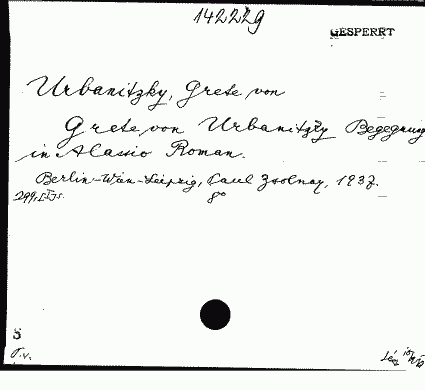 142229
GESPERRT
Urbanitzky, Grete von
Grete von Urbanitzky Begegnung
in Alassio Roman.
Berlin-Wien-Leipzig, Paul Zsolnay, 1937.
299, S. 8°
S
T.v.